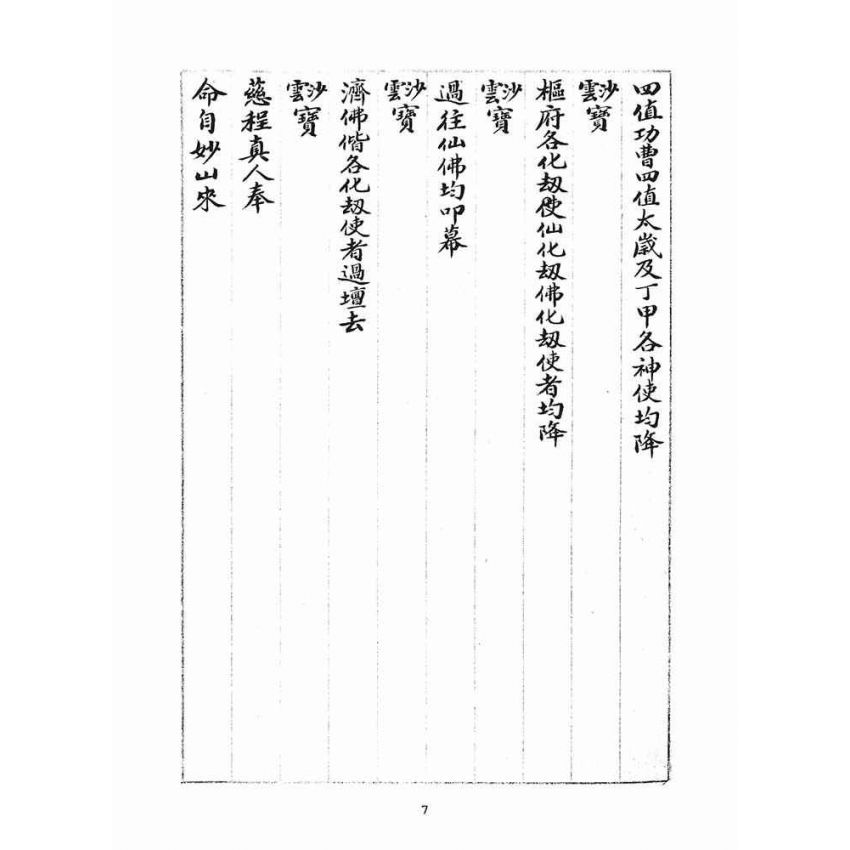 四值功曹四值太歲及丁甲各神使均降
沙雲寶
樞府各化刼使仙化刼佛化刼使者均降
沙雲寶
過往仙佛均叩幕
沙雲寶
濟佛偕各化刼使者過壇去
沙雲寶
慈程真人奉
命自妙山來
7